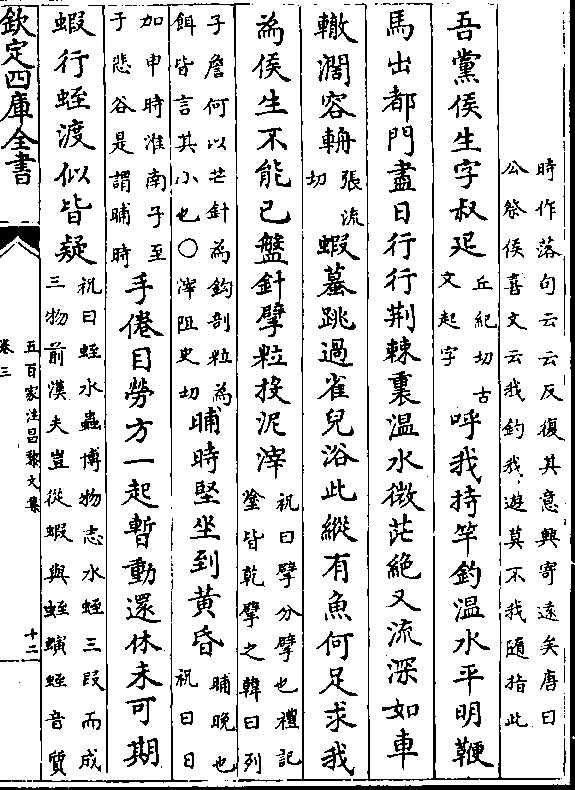 時作落句云云反復其意興寄遠矣唐曰
公祭侯喜文云我釣我遊莫不我隨指此
吾黨侯生字叔
丘紀切古
文起字
呼我持竿釣溫水平明鞭
馬出都門盡日行行荆棘裏溫水微茫絶又流深如車
轍濶容輈
張流
切
蝦蟇跳過雀兒浴此縱有魚何足求我
為侯生不能已盤針擘粒投泥滓
祝曰擘分擘也禮記
塗皆乾擘之韓曰列
子詹何以芒針為鈎剖粒為
餌皆言其小也○滓阻史切
晡時堅坐到黄昏
晡晚也
祝曰日
加申時淮南子至
于悲谷是謂晡時
手倦目勞方一起暫動還休未可期
蝦行蛭渡似皆疑
祝曰蛭水蟲博物志水蛭三叚而成
三物前漢夫豈從蝦與蛭螾蛭音質
欽定四庫全書
五百家注昌黎文集
卷三
十二